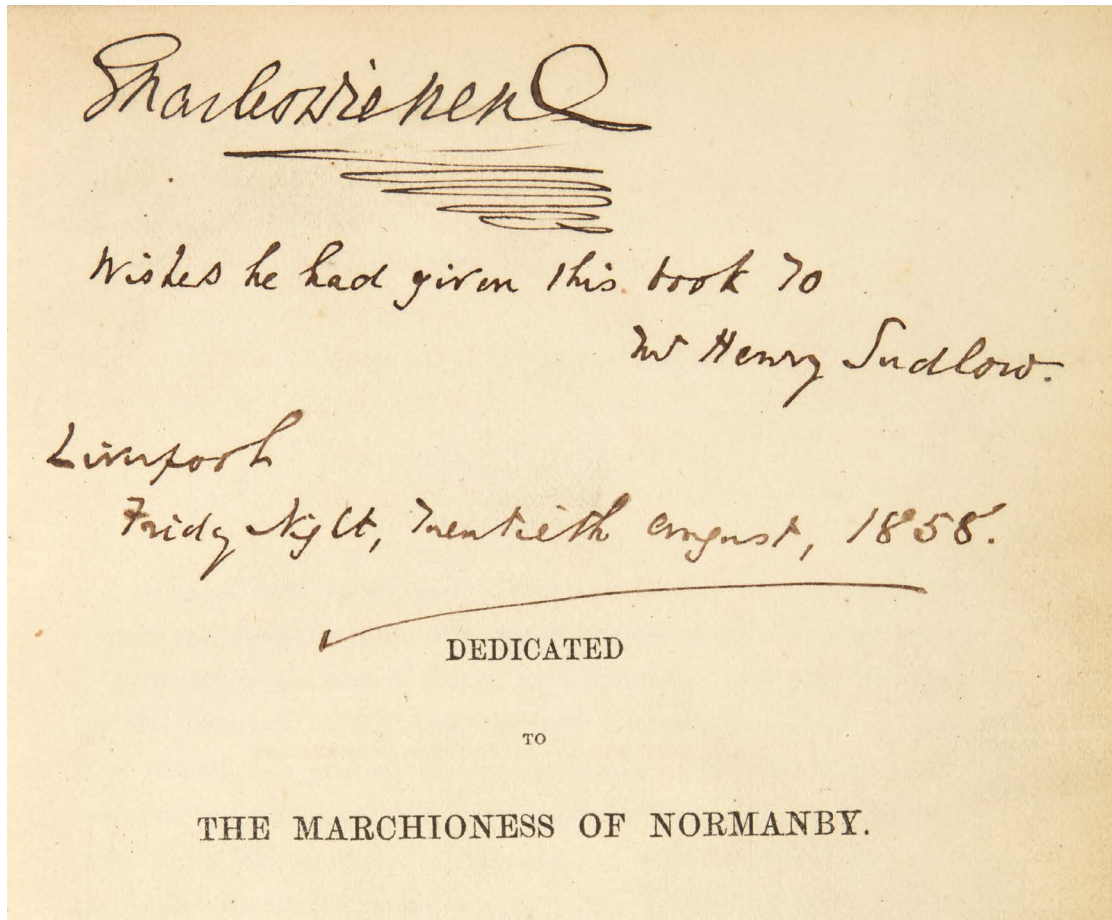 Charles Dickens
Wishes he had given this book to
Mr Henry Sudlow.
Liverpool
Friday Night, Twentieth August, 1858.
DEDICATED
TO
THE MARCHIONESS OF NORMANBY.